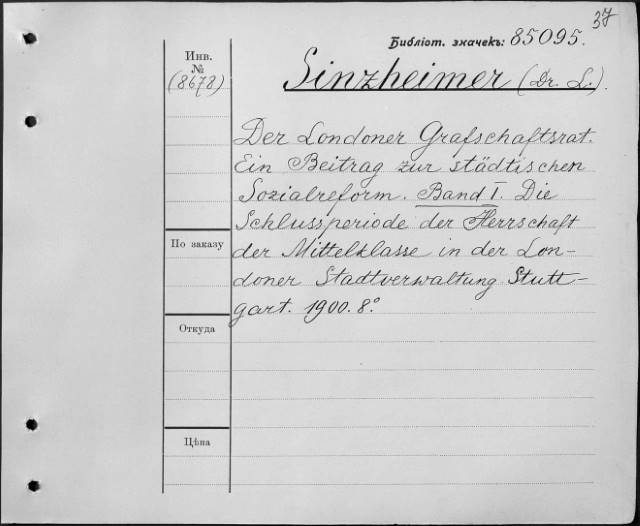 37
Библіот. значекъ: 85095.
Инв.
№
(8678)
Sinzheimer (Dr. L.).
Der Londoner Grafschaftsrat.
Ein Beitrag zur städtischen
Sozialreform. Band I. Die
Schlussperiode der Herrschaft
der Mittelklasse in der Lon-
doner Stadtverwaltung Stutt-
gart. 1900. 8.°
По заказу
Откуда
Цѣна